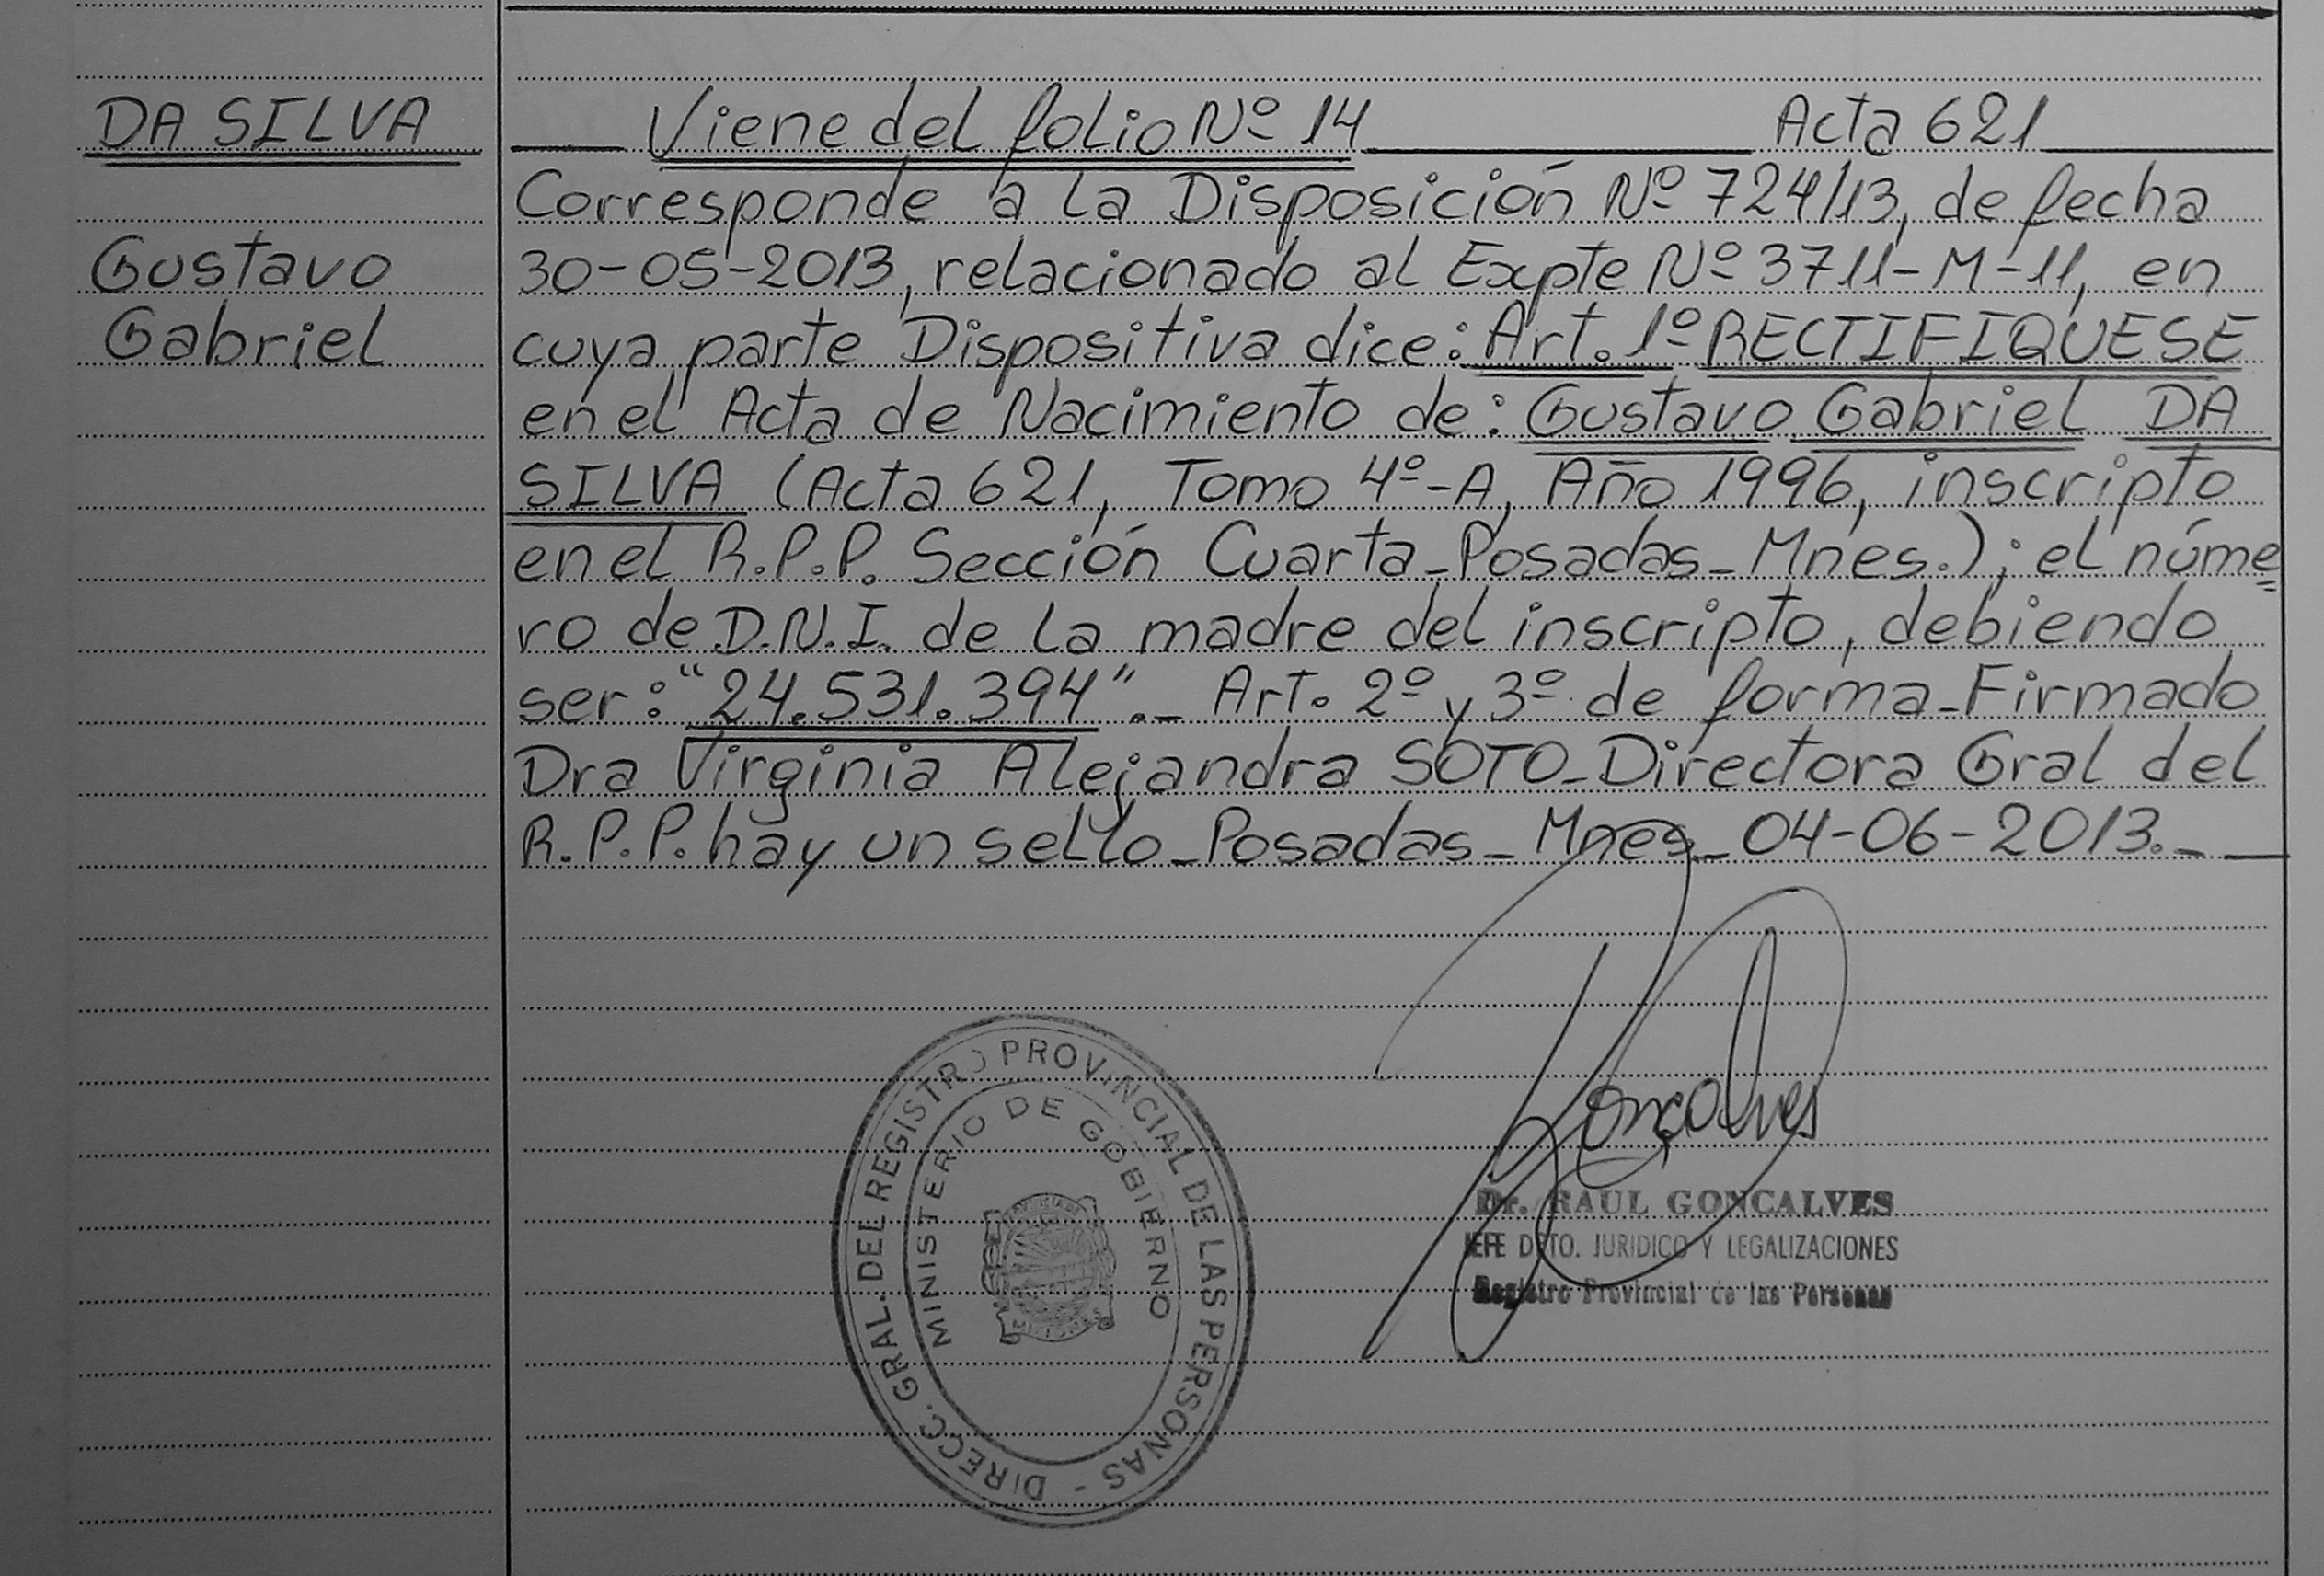 DA SILVA
Gustavo
Gabriel
Viene del folio Nº 14 Acta 621
Corresponde a la Disposición Nº 724/13, de fecha
30-05-2013, relacionado al Expte Nº 3711-M-11, en
cuya parte Dispositiva dice: Art. 1º RECTIFIQUESE
en el Acta de Nacimiento de: Gustavo Gabriel DA
SILVA (Acta 621, Tomo 4º-A, Año 1996, inscripto
en el R.P.P. Sección Cuarta_Posadas_Mnes.); el núme=
ro de D.N.I. de la madre del inscripto, debiendo
ser: "24.531.394"._ Art. 2º y 3º de forma_Firmado
Dra Virginia Alejandra SOTO_Directora Gral del
R.P.P. hay un sello_Posadas_Mnes_04-06-2013._
DIRECC. GRAL. DEL REGISTRO PROVINCIAL DE LAS PERSONAS -
MINISTERIO DE GOBIERNO
Goncalves
Dr. RAUL GONCALVES
JEFE DPTO. JURIDICO Y LEGALIZACIONES
Registro Provincial de las Personas